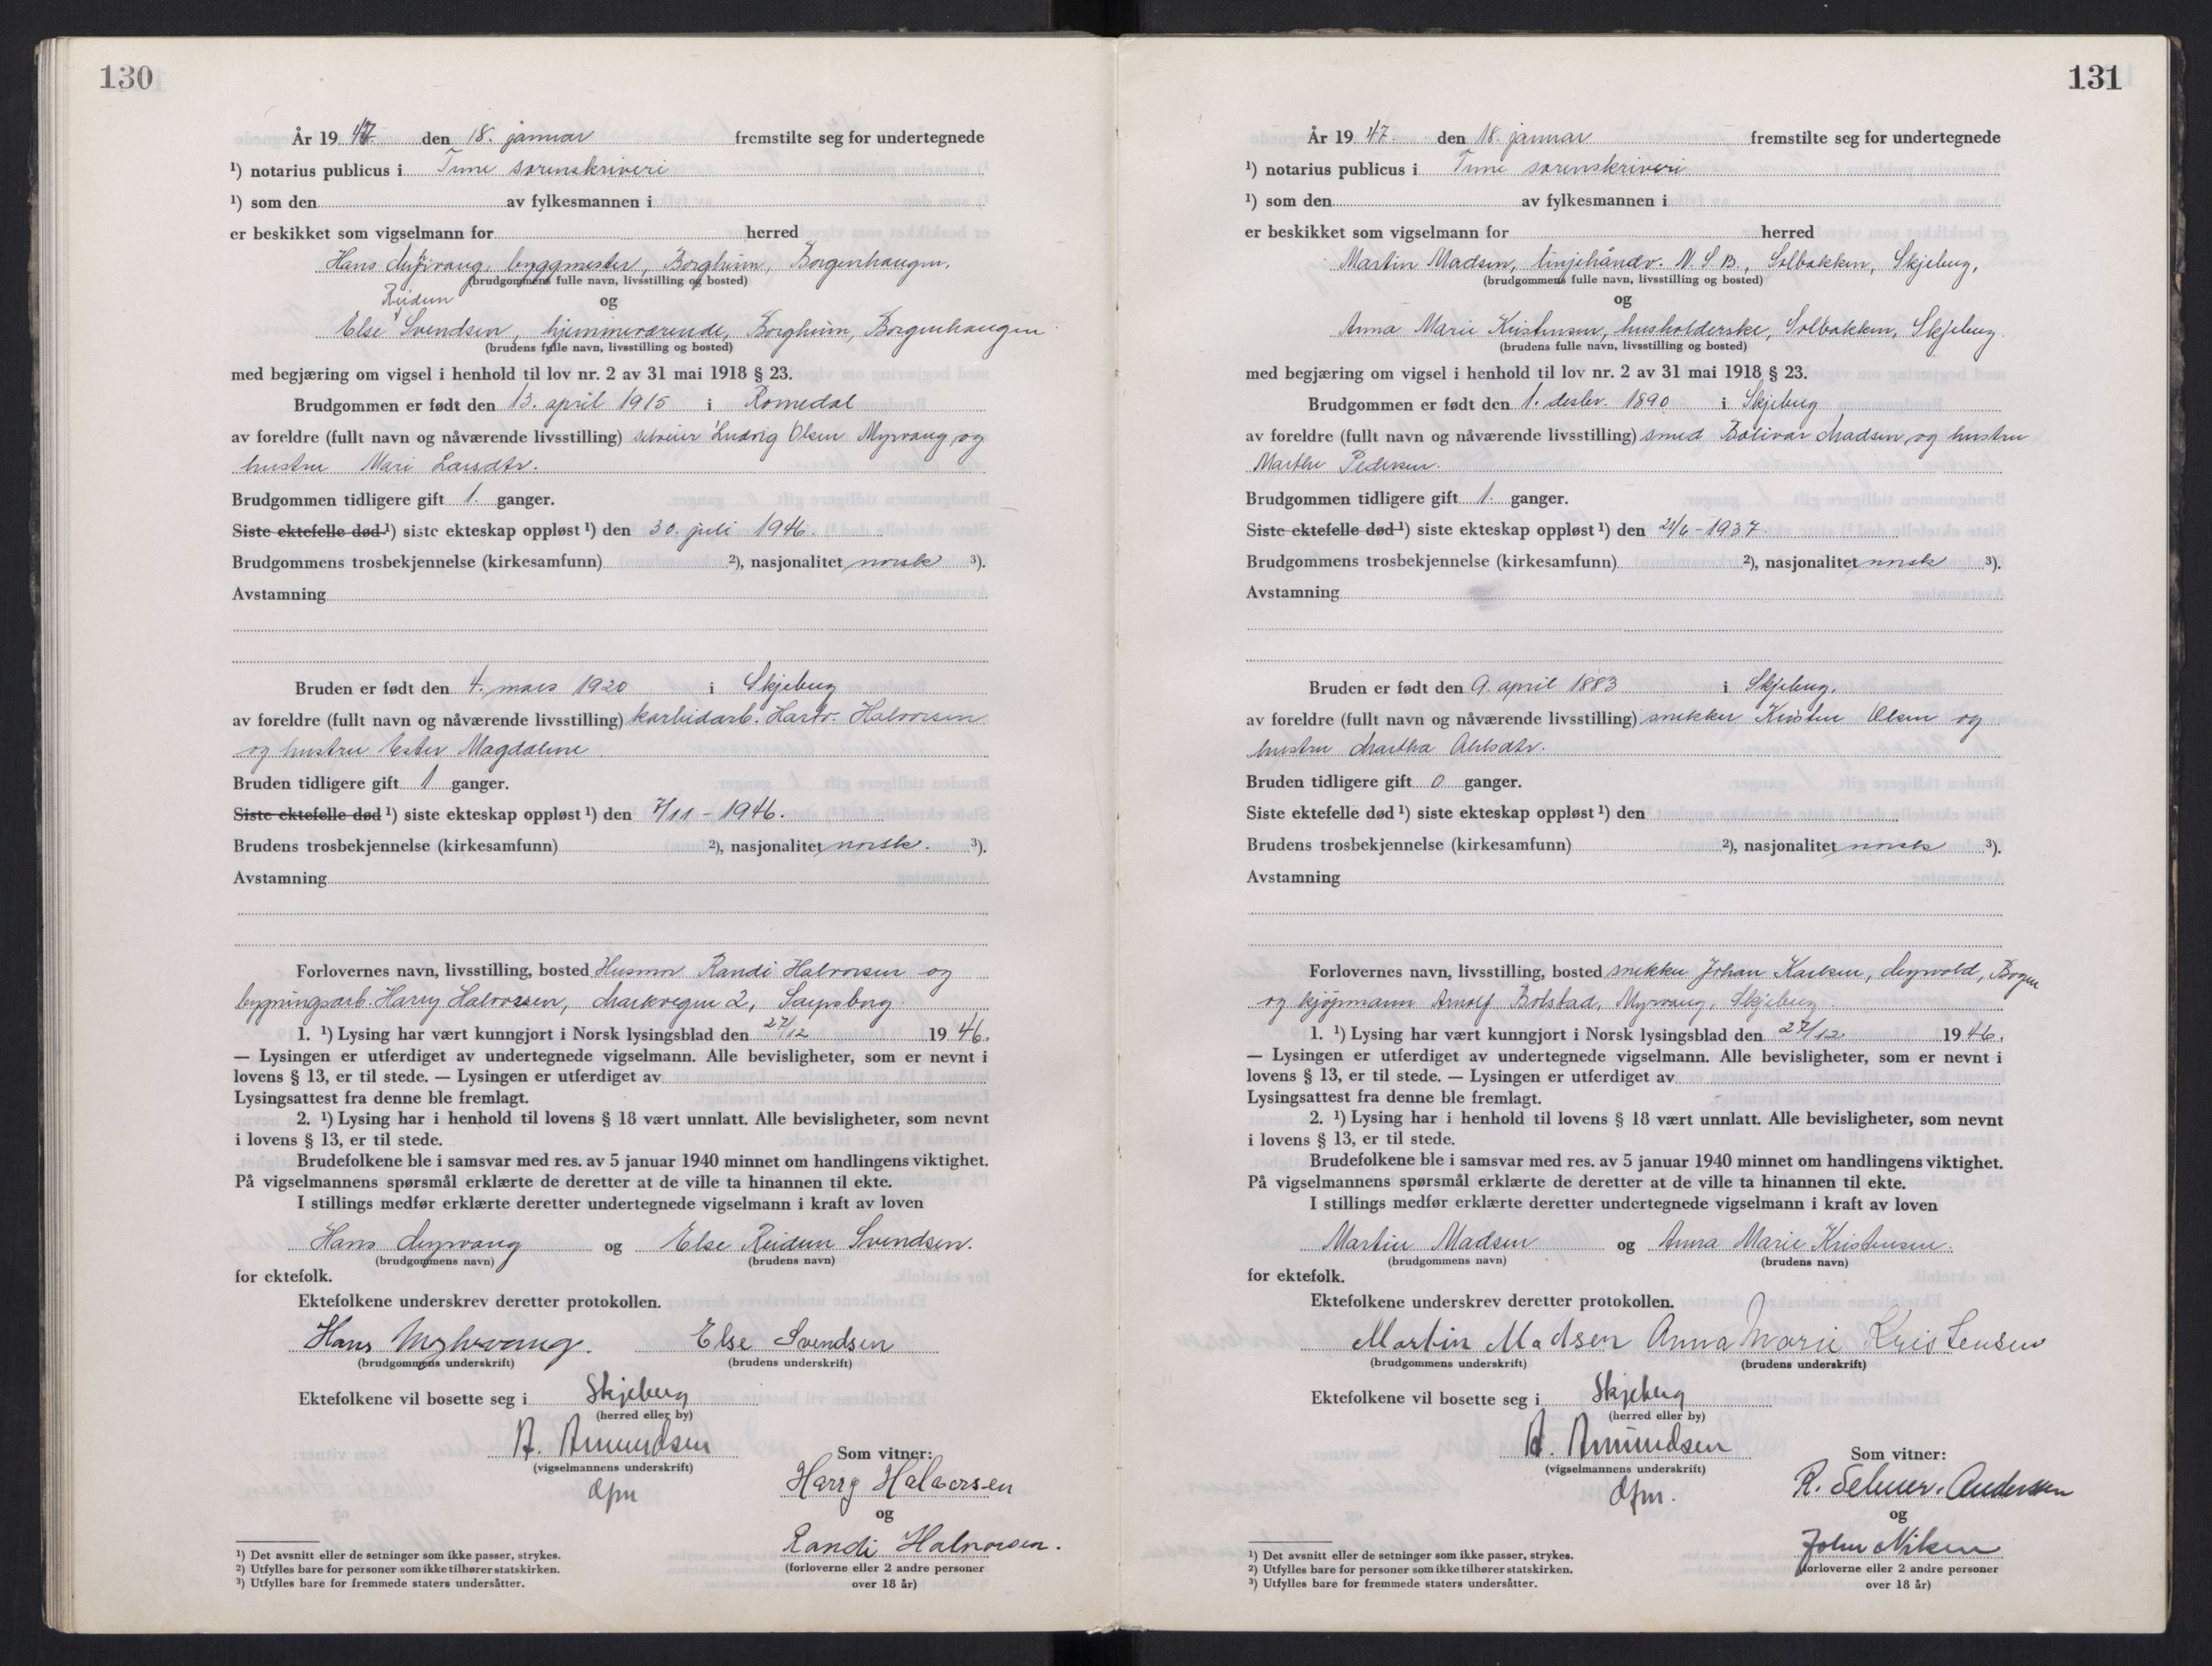 130
År 1947. den 18. januar fremstilte seg for undertegnede
¹) notarius publicus i Tune sorenskriveri
¹) som den av fylkesmannen i
er beskikket som vigselmann for herred
Hans Myrvang, byggmester, Borgheim, Borgenhaugen.
(brudgommens fulle navn, livsstilling og bosted)
og
Reidun
Else Svendsen, hjemmeværende, Borgheim, Borgenhaugen
(brudens fulle navn, livsstilling og bosted)
med begjæring om vigsel i henhold til lov nr. 2 av 31 mai 1918 § 23.
Brudgommen er født den 13. april 1915 i Romedal
av foreldre (fullt navn og nåværende livsstilling) selveier Ludvig Olsen Myrvang og
hustru Mari Larsdtr.
Brudgommen tidligere gift 1. ganger.
Siste ektefelle død ¹) siste ekteskap oppløst ¹) den 30. juli 1946.
Brudgommens trosbekjennelse (kirkesamfunn) ²), nasjonalitet norsk ³).
Avstamning
Bruden er født den 4. mars 1920 i Skjeberg
av foreldre (fullt navn og nåværende livsstilling) karbidarb. Hartv. Halvorsen
og hustru Ester Magdalene
Bruden tidligere gift 1 ganger.
Siste ektefelle død ¹) siste ekteskap oppløst ¹) den 7/11 - 1946.
Brudens trosbekjennelse (kirkesamfunn) ²), nasjonalitet norsk. ³).
Avstamning
Forlovernes navn, livsstilling, bosted Husmor Randi Halvorsen og
bygningsarb. Harry Halvorsen, Markvegen 2, Sarpsborg.
1. ¹) Lysing har vært kunngjort i Norsk lysingsblad den 27/12 1946.
— Lysingen er utferdiget av undertegnede vigselmann. Alle bevisligheter, som er nevnt i
lovens § 13, er til stede. — Lysingen er utferdiget av
Lysingsattest fra denne ble fremlagt.
2. ¹) Lysing har i henhold til lovens § 18 vært unnlatt. Alle bevisligheter, som nevnt
i lovens § 13, er til stede.
Brudefolkene ble i samsvar med res. av 5 januar 1940 minnet om handlingens viktighet.
På vigselmannens spørsmål erklærte de deretter at de ville ta hinannen til ekte.
I stillings medfør erklærte deretter undertegnede vigselmann i kraft av loven
Hans Myrvang og Else Reidun Svendsen.
(brudgommens navn) (brudens navn)
for ektefolk.
Ektefolkene underskrev deretter protokollen.
Hans Myhrvang. Else Svendsen
(brudgommens underskrift) (brudens underskrift)
Ektefolkene vil bosette seg i Skjeberg
(herred eller by)
A. Amundsen
(vigselmannens underskrift)
Som vitner:
Harry Halvorsen
og
Randi Halvorsen.
(forloverne eller 2 andre personer
over 18 år)
¹) Det avsnitt eller de setninger som ikke passer, strykes.
²) Utfylles bare for personer som ikke tilhører statskirken.
³) Utfylles bare for fremmede staters undersåtter.
131
År 1947. den 18. januar fremstilte seg for undertegnede
¹) notarius publicus i Tune sorenskriveri
¹) som den av fylkesmannen i
er beskikket som vigselmann for herred
Martin Madsen, linjehåndv. N. S. B., Solbakken, Skjeberg,
(brudgommens fulle navn, livsstilling og bosted)
og
Anna Marie Kristensen, husholderske, Solbakken, Skjeberg.
(brudens fulle navn, livsstilling og bosted)
med begjæring om vigsel i henhold til lov nr. 2 av 31 mai 1918 § 23.
Brudgommen er født den 1. desbr. 1890 i Skjeberg
av foreldre (fullt navn og nåværende livsstilling) smed Bolivar Madsen og hustru
Marthe Pedersen.
Brudgommen tidligere gift 1. ganger.
Siste ektefelle død ¹) siste ekteskap oppløst ¹) den 21/6 - 1937.
Brudgommens trosbekjennelse (kirkesamfunn) ²), nasjonalitet norsk ³).
Avstamning
Bruden er født den 9. april 1883 i Skjeberg.
av foreldre (fullt navn og nåværende livsstilling) snekker Kristen Olsen og
hustru Martha
Bruden tidligere gift 0 ganger.
Siste ektefelle død ¹) siste ekteskap oppløst ¹) den
Brudens trosbekjennelse (kirkesamfunn) ²), nasjonalitet norsk ³).
Avstamning
Forlovernes navn, livsstilling, bosted snekker Johan Karlsen, Myrvold, Borgen
og kjøpmann Arnolf Bolstad, Myrvang, Skjeberg.
1. ¹) Lysing har vært kunngjort i Norsk lysingsblad den 27/12 1946.
— Lysingen er utferdiget av undertegnede vigselmann. Alle bevisligheter, som er nevnt i
lovens § 13, er til stede. — Lysingen er utferdiget av
Lysingsattest fra denne ble fremlagt.
2. ¹) Lysing har i henhold til lovens § 18 vært unnlatt. Alle bevisligheter, som nevnt
i lovens § 13, er til stede.
Brudefolkene ble i samsvar med res. av 5 januar 1940 minnet om handlingens viktighet.
På vigselmannens spørsmål erklærte de deretter at de ville ta hinannen til ekte.
I stillings medfør erklærte deretter undertegnede vigselmann i kraft av loven
Martin Madsen og Anna Marie Kristensen.
(brudgommens navn) (brudens navn)
for ektefolk.
Ektefolkene underskrev deretter protokollen.
Martin Madsen Anna Marie Kristensen
(brudgommens underskrift) (brudens underskrift)
Ektefolkene vil bosette seg i Skjeberg
(herred eller by)
A. Amundsen
(vigselmannens underskrift)
Som vitner:
R. Selmer-Andersen
og
John Nilsen
(forloverne eller 2 andre personer
over 18 år)
¹) Det avsnitt eller de setninger som ikke passer, strykes.
²) Utfylles bare for personer som ikke tilhører statskirken.
³) Utfylles bare for fremmede staters undersåtter.